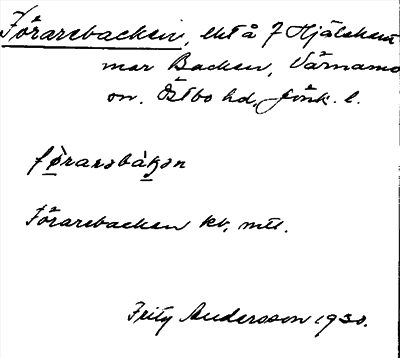 Förarebacken, ekt å 7 Hjälshem
mar Backen, Värnamo
sn. Östbo hd, Jönk. l.
førarəbàkən
Förarebacken kv, mtl.
Fritz Andersson 1930.